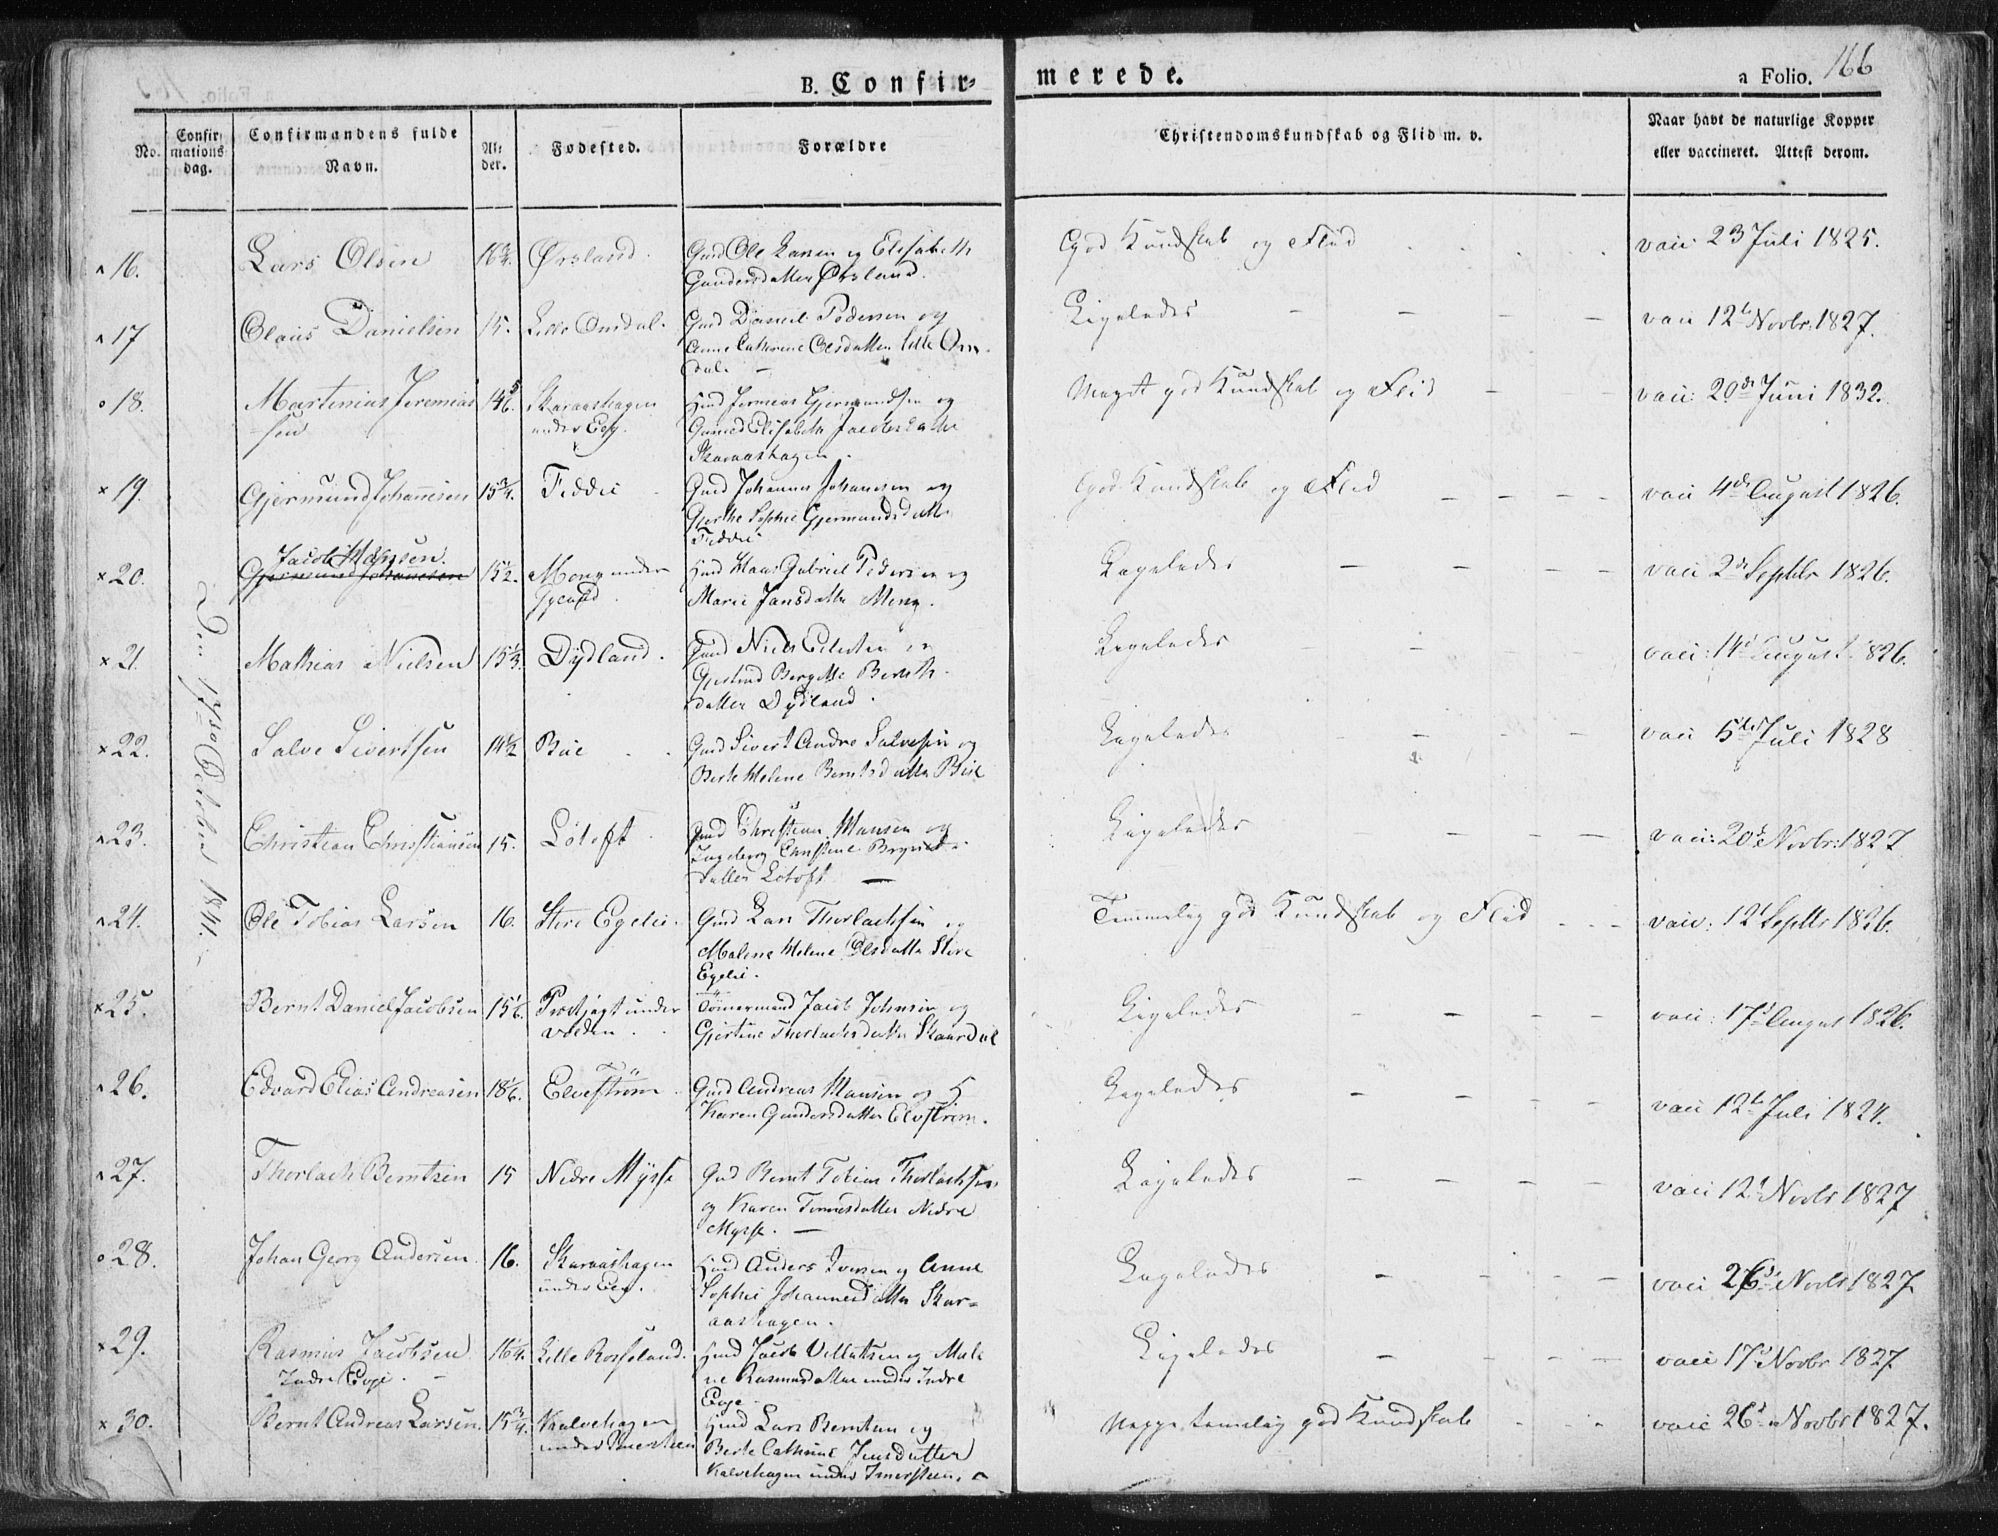 B. Confirmerede.
a Folio. 166
No.
Confirmations dag.
Confirmandens fulde Navn.
Alder.
Fødested.
Forældre
Christendomskundskab og Flid m. v.
Naar havt de naturlige Kopper
eller vaccineret. Attest derom.
Den 17de October 1841.
16. Lars Olsen 16 3/4. Ørsland. Gmd Ole Larsen og Elisabeth god Kundskab og Flid vacc: 23 Juli 1825.
Gundersdatter Ørsland.
17 Olaus Danielsen 15. Lille Omdal. Gmd Daniel Pedersen og Ligeledes vacc 12te Novbr: 1827.
Anne Cathrine Olsdatter lille Om-
dal.
18. Martinius Jeremias- 14 5/6. Skaraashagen Hmd Jermias Gjermundsen og Meget god Kundskab og Flid vacc: 20de Juni 1832.
sen under Eeg. Elisabeth Jacobsdatter
Skaraashagen.
19. Gjermund Johannesen 15 3/4. Feddie Gmd Johannes Johanesen og God Kundskab og Flid vacc 4de August 1826.
Gjerthe Sophie Gjermundsdatter
Feddie
20. Jacob Hansen. 15 1/2. Mong under Hmd Hans Gabriel Pedersen og Ligeledes vacc 2de Septbr 1826.
Gjermund Johannesen Marie Jansdatter Mong.
21. Mathias Nielsen 15 1/3. Dydland. Gmd Niels Ligeledes vacc: 14de August 1826.
Bergitte Bernts-
datter Dydland.
22. Salve Sivertsen 14 1/2 Bue Gmd Sivert Andre Salvesen og Ligeledes vacc 5te Juli 1828
Berte Helene Berntsdatter Bue
23. Christian Christiansen 15. Lötoft Gmd Christian Hansen og Ligeledes vacc: 20de Novbr: 1827
Ingeborg Christine
datter Lötoft
24. Ole Tobias Larsen 16. Store Egelie. Gmd Lars Thorlachsen og Temmelig god Kundskab og Flid vacc: 12te Septbr 1826.
Malene Helene Olsdatter Store
Egelie.
25. Bernt Daniel Jacobsen 15 1/6. under Tömermand Jacob Johnsen og Ligeledes vacc: 17de August 1826.
volden Gjertine Thorlachsdatter Skaardal
26. Edvard Elias Andreasen 18 1/6. Elveström Gmd Andreas Hansen og Ligeledes vacc 12te Juli 1824.
Karen Gundersdatter Elvström.
27. Thorlach Berntsen 15 Nedre Mysse Gmd Bernt Tobias Thorlachsen Ligeledes vacc 12te Novbr 1827
og Karen Tönnesdatter Nedre
Mysse.
28. Johan Georg Andersen 16. Skaraashagen Hmd Anders Iversen og Anne Ligeledes vacc 26de Novbr 1827.
under Eeg. Sophie Johannesdatter Skar-
aashagen.
29. Rasmus Jacobsen 16 1/4. Lille Rosseland. Hmd Jacob Villatsen og Male- Ligeledes vacc 17de Novbr 1827
Indre Eege. ne Rasmusdatter under Indre
Eege
30. Bernt Andreas Larsen. 15 3/4. Kalvehagen Hmd Lars Berntsen og Neppe temelig god Kundskab vacc 26de Novbr 1827.
under Berte Cathrine Jensdatter
Kalvehagen under Imersteen.